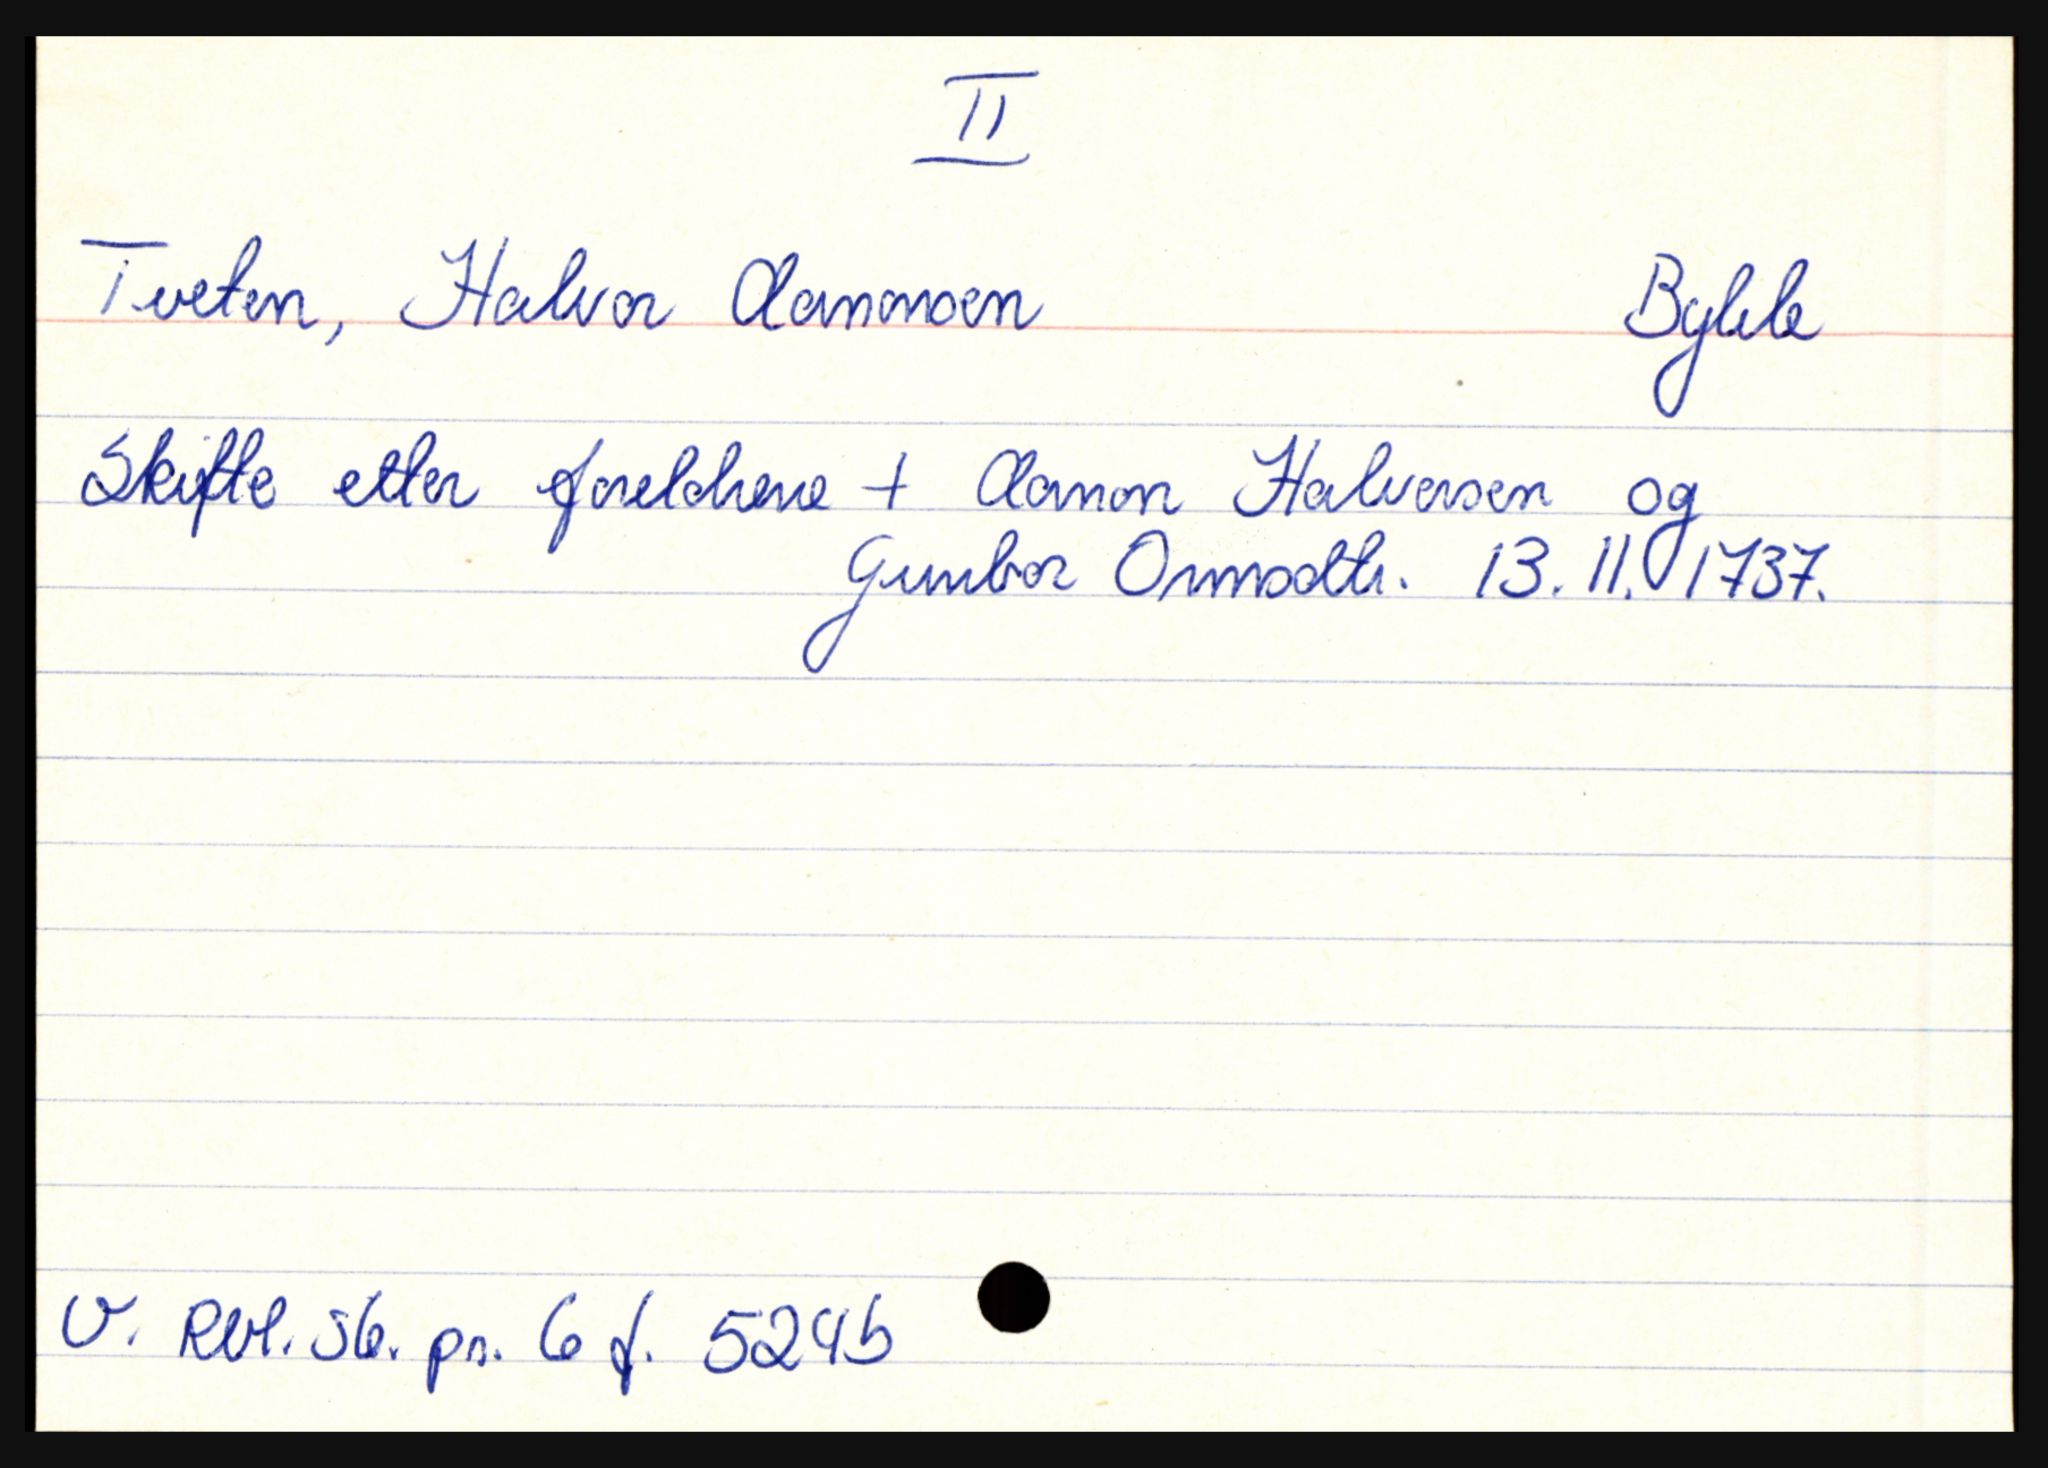 II
Tveten, Halvor Aanonsen Bykle
Skifte etter foreldrene + Aanon Halvorsen og
Gunbor Ormsdtr. 13. 11. 1737.
V. Rbl. sk. pr. 6 f. 524b